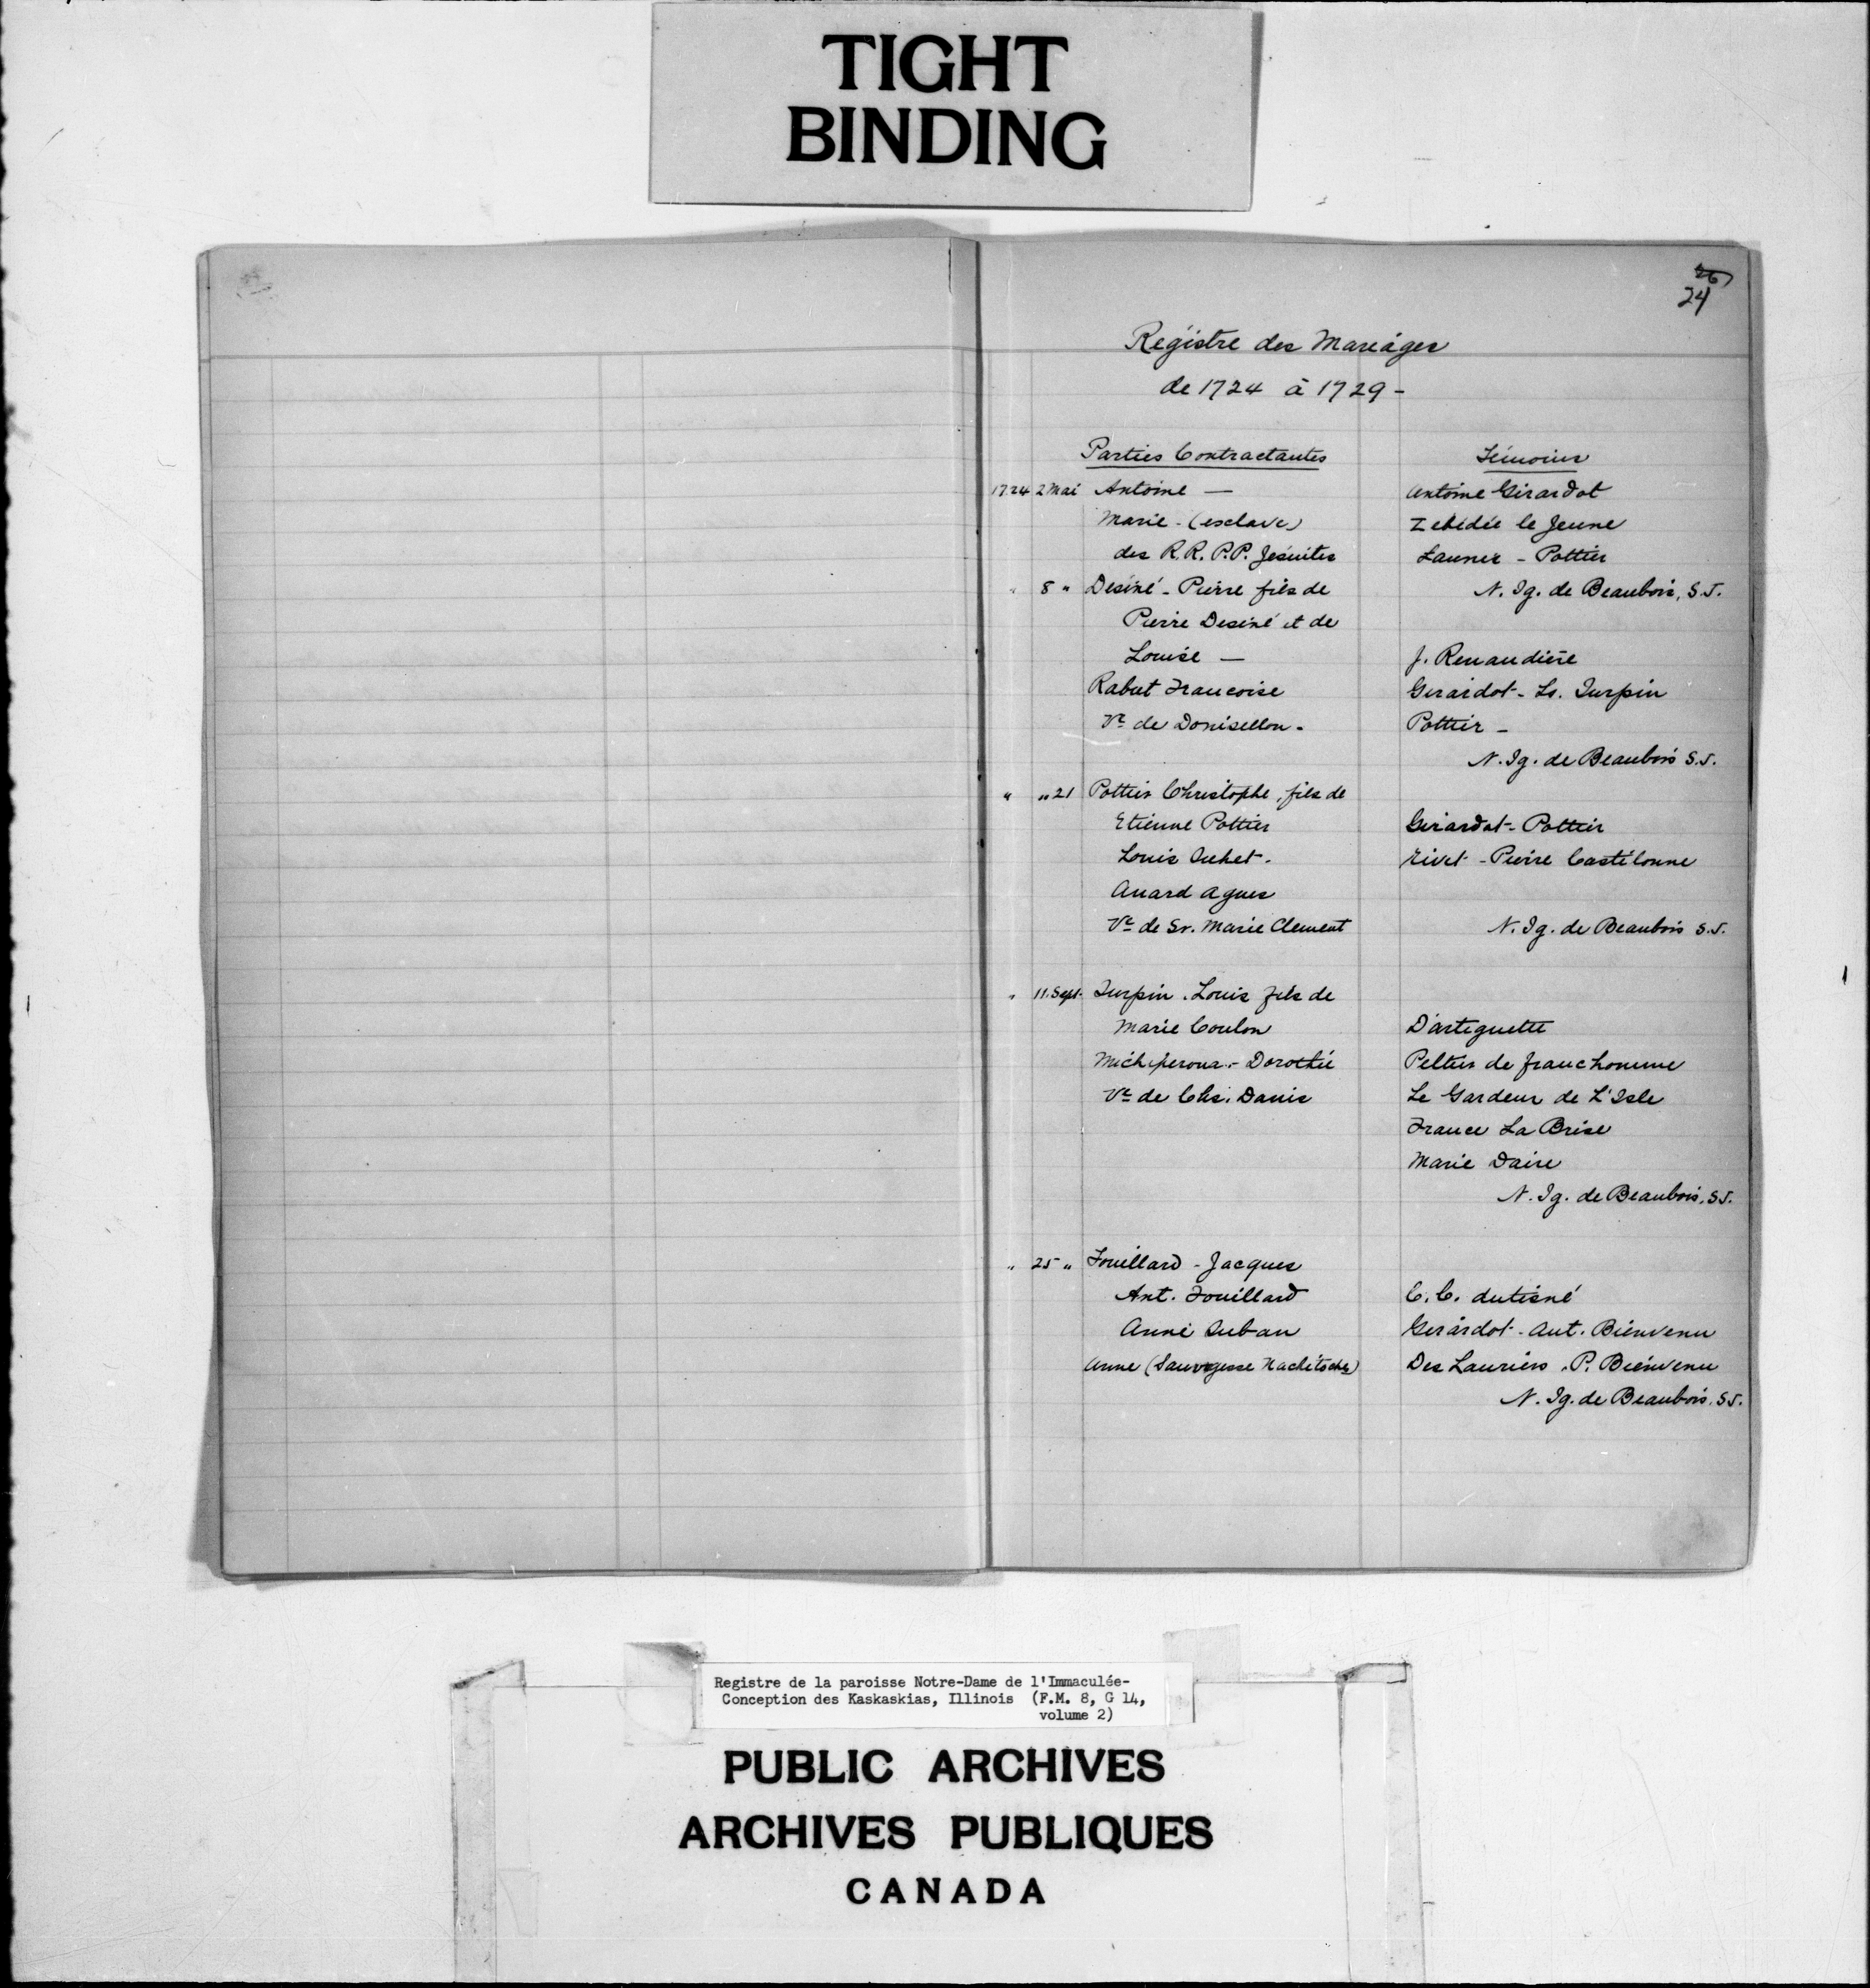 TIGHT
BINDING
26
24
Régistre des Mariages
de 1724 à 1729 -
Parties Contractantes Témoins
1724 2 Mai Antoine — Antoine Girardot
Marie - (esclave) Zebédée le Jeune
des R.R. P.P. Jesuites Launer - Pottier
" 8 " Desiné - Pierre fils de N. Ig. de Beaubois, S.J.
Pierre Desiné et de
Louise — J. Renaudière
Rabut Francoise Girardot - Ls. Turpin
Ve de Donisellon - Pottier -
N. Ig. de Beaubois S.J.
" " 21 Pottier Christophe, fils de
Etienne Pottier Girardot - Pottier
Louis Suhet - Rivet - Pierre Castélonne
Anard Agnes
Ve de Sr. Marie Clement N. Ig. de Beaubois S.J.
" 11 Sept. Turpin . Louis fils de
Marie Coulon D'artiguette
Michiperoua - Dorothée Peltier de franchomme
Ve de Chs. Danis Le Gardeur de L'Isle
France La Brise
Marie Daire
N. Ig. de Beaubois, S.J.
" 25 " Fouillard - Jacques
Ant. Fouillard C. C. dutisné
Anne Suban Girardot - Ant. Bienvenu
Anne (Sauvagesse Nachitoches) Des Lauriers . P. Bienvenu
N. Ig. de Beaubois, S.J.
Registre de la paroisse Notre-Dame de l'Immaculée-
Conception des Kaskaskias, Illinois (F.M. 8, G 14,
volume 2)
PUBLIC ARCHIVES
ARCHIVES PUBLIQUES
CANADA